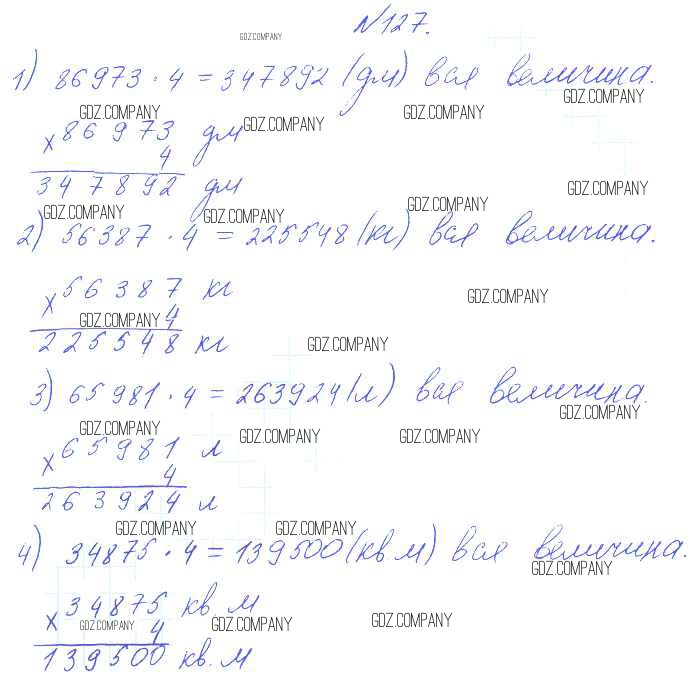 №127.
GDZ.COMPANY
1) 86973 · 4 = 347892 (дм) вся величина.
GDZ.COMPANY GDZ.COMPANY GDZ.COMPANY
× 86973 дм GDZ.COMPANY
4
347892 дм
GDZ.COMPANY GDZ.COMPANY GDZ.COMPANY GDZ.COMPANY
2) 56387 · 4 = 225548 (кг) вся величина.
× 56387 кг
GDZ.COMPANY
GDZ.COMPANY 4
225548 кг GDZ.COMPANY
3) 65981 · 4 = 263924 (л) вся величина.
GDZ.COMPANY GDZ.COMPANY GDZ.COMPANY GDZ.COMPANY
× 65981 л
4
263924 л
GDZ.COMPANY GDZ.COMPANY
4) 34875 · 4 = 139500 (кв.м) вся величина.
GDZ.COMPANY
× 34875 кв.м
GDZ.COMPANY 4 GDZ.COMPANY GDZ.COMPANY
139500 кв.м